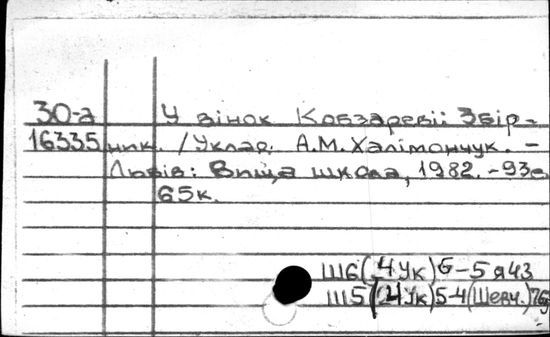 30-а У вінок Кобзареві: Збір-
16335 ник. /Уклад. А.М.Халімончук. –
Львів: Вища школа, 1982. – 93с.
65к.
Ш6(4Ук)6-5я43
Ш5(4Ук)5-4(Шевч.)